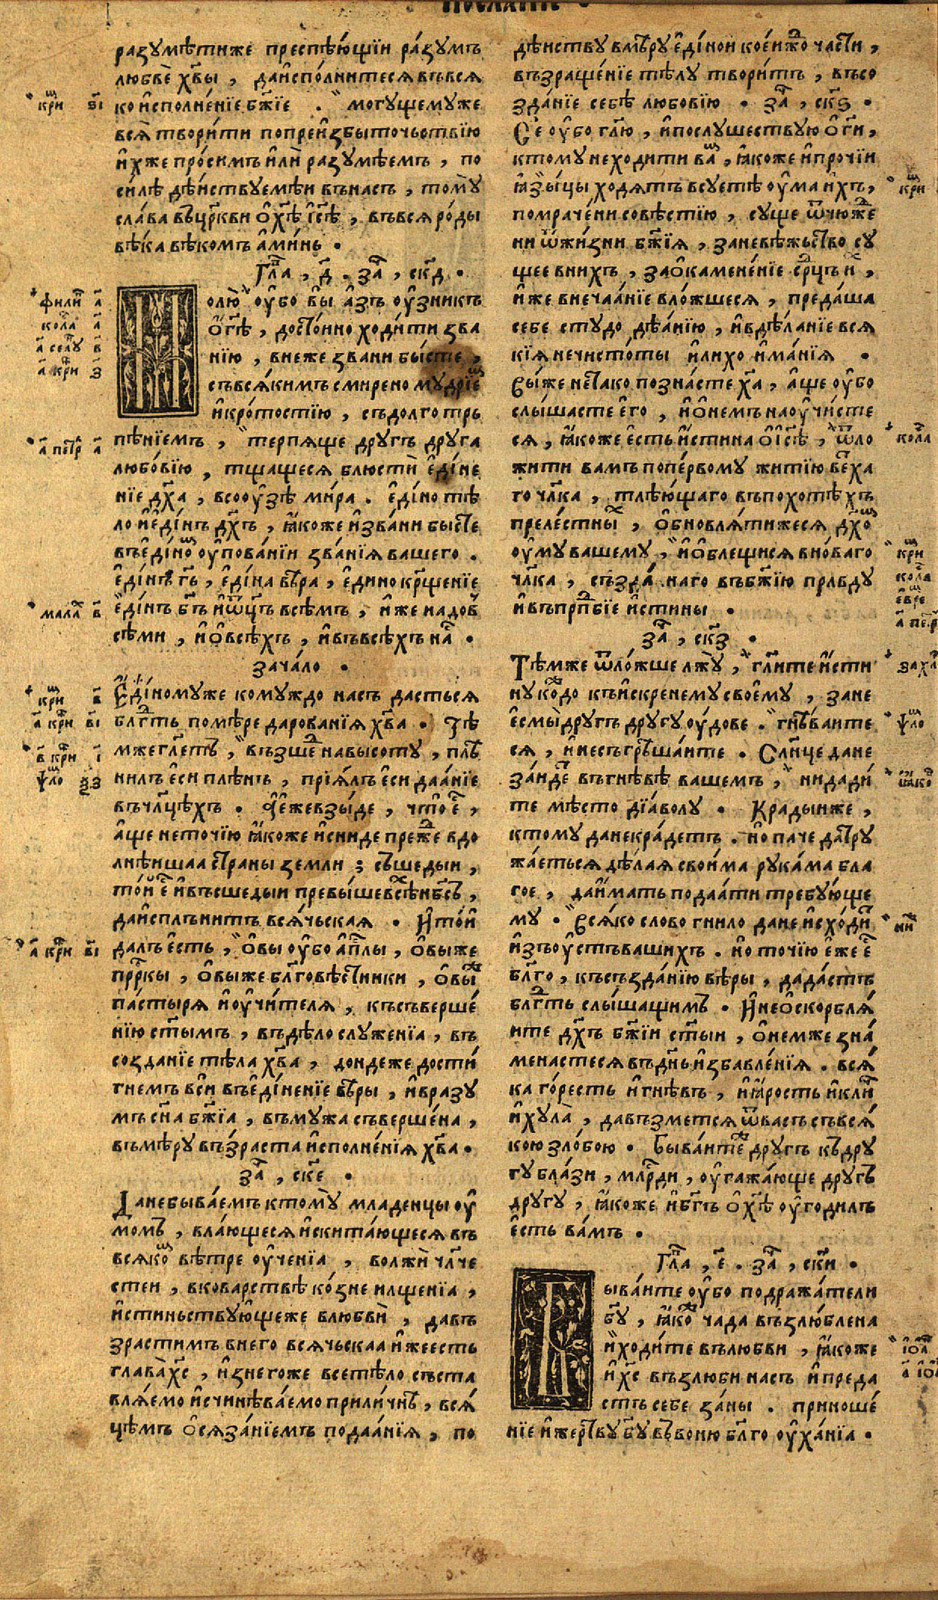 посланїе .
разꙋмѣтиже преспѣю́щїи ра́зꙋмъ
любвѐ хв҃ы , даиспо́лнитеся въвся
ко исполне́нїе бж҃їе . могꙋщемꙋже
вся̀ твори́ти попреизбыточьствїю
и҆хже про́симъ и҆лѝ разꙋмѣемъ , по
силѣ дѣ́йствꙋемѣи въ насъ , томꙋ̀
сла́ва въцр҃кви ѡ҆ хѣ҃ і҆сѣ҃ , въвся ро́ды
вѣ́ка вѣкомъ а҆ми́нь .
Гла̑ , д҃ . за̑ , ск҃д .
Молю̀ ᲂу҆бо вы̀ а҆зъ ᲂу҆́зникъ
ѡ҆ гдѣ҃ , досто́инно ходи́ти зва
нїю , внеже звани бы́сте ,
съвся́кимъ смирено мꙋ́дрїе
и҆ кро́тостїю , съдолго трь
пѣнїемъ , терпяще дрꙋгъ дрꙋга
любо́вїю , тщащеся блюстѝ е҆ди́не
нїе дх҃а , всоꙋ́зѣ ми́ра . е҆ди́но тѣ
ло и҆ е҆ди́нъ дх҃ъ , ꙗ҆коже и҆зва́ни бысте
въ е҆ди́но ᲂу҆пова́нїи зва́нїя вашего .
е҆ди́нъ гь҃ , е҆ди́на вѣра , е҆дино крщ҃енїе
е҆ди́нъ бг҃ъ и҆ ѿц҃ъ всѣмъ , и҆же надов
сѣми , и҆ ѡ҆ всѣхъ , и҆ въвсѣхъ на̑ .
зача́ло .
Е҆ди́номꙋже комꙋждо насъ дастъся
блг҃ть по мѣ́ре дарова́нїя хв҃а . Тѣ
мже гл҃етъ , въ зше̑ на высотꙋ̀ , плѣ
нилъ є҆си плѣнъ , прїя́лъ є҆си дая́нїе
въ чл҃цѣхъ . а҆ е҆же взы́де , что̀ е҆̑ ,
а҆ще неточїю ꙗ҆коже и҆ сниде преже̑ вдо
лнѣишая страны̀ земли ; съшедыи ,
то́и е҆̑ и҆ въсшедыи превы́ше всѣ̑ нб҃съ ,
да и҆сплънитъ вся́чьская . И҆ то́и
далъ є҆сть , ѡ҆вы ᲂу҆бо а҆пл҃ы , ѡ҆выже
прр҃кы , ѡ҆выже блг҃овѣстники , ѡ҆вы̑
па́стыря и҆ ᲂу҆чи́теля , къ съверше́
нїю ст҃ымъ , въ дѣло слꙋже́нїа , въ
созда́нїе тѣ́ла хв҃а , дондеже дости́
гнемъ вси въ е҆ди́ненїе вѣры , и҆ вразꙋ
мъ сн҃а бж҃їа , въ мꙋжа съвершена ,
въ мѣрꙋ въ́зраста и҆сполне́нїя хв҃а .
за̑ , ск҃е .
Да небыва́емъ ктомꙋ̀ младенцы ᲂу҆
момъ , влаю́щеся и҆ скита́ющеся въ
вся́ко вѣ́тре ᲂу҆че́нїа , волжѝ чл҃че
стеи , вковарствѣ ко́зне и҆лщенїа ,
и҆стиньствꙋю҆щеже влюбвѝ , давъ
зрастимъ внего вся́чьская и҆же есть
глава̀ хс҃ , и҆знегоже все тѣ́ло съста
вля́емо и҆ счинѣва́емо прили́чнѣ , вся́
цѣмъ ѡ҆сяза́нїемъ пода́янїя , по
дѣ́йствꙋ вмѣрꙋ е҆ди́нои коеи́жо ча́сти ,
възраще́нїе тѣлꙋ твори́тъ , въсо
зда́нїе себѣ̀ любовїю . за̑ , ск҃ѕ .
Се ᲂу҆бо гл҃ю , и҆ послꙋшествꙋю ѡ҆ гд҃и ,
ктомꙋ неходити ва̑ , ꙗ҆коже и҆ про́чїи
ꙗ҆зы́цы ходятъ всꙋетѣ̀ ᲂу҆ма и҆хъ ,
помраче́ни со́вѣстїю , сꙋще ѿчюже̑
ни ѿ жи́зни бж҃їя , за невѣ́жьство сꙋ
щее внихъ , за ѡ҆камене́нїе срд҃цъ и҆̑ ,
и҆же внеча́янїе вло́жшеся , преда́ша
себе стꙋдо дѣя́нїю , и҆ вдѣ́ланїе вся
кїя нечисто́ты и҆ лихо и҆ма́нїя .
Выже нетако позна́сте ха҃ , а҆ще ᲂу҆бо
слы́шасте е҆го , и҆ ѡ҆ немъ наᲂу҆чи́сте
ся , ꙗ҆коже е҆сть и҆стина ѡ҆ і҆сѣ҃ , ѿло
жити вамъ попе́рвомꙋ житїю ве́тха
го чл҃ка , тлѣю́щаго въ по́хотѣхъ
преле́стны̑ , ѡ҆бновля́тижеся дх҃о̑
ᲂу҆мꙋ вашемꙋ , и҆ ѡ҆блещися вно́ваго
чл҃ка , създа́ наго въ бж҃їю правдꙋ
и҆ въ прп҃бїе и҆́стины .
за̑ , ск҃з .
Тѣ́мже ѿло́жше лжꙋ̀ , гл҃ите и҆́сти
нꙋ ко́ждо къ и҆скренемꙋ своемꙋ , зане
е҆смы̀ дрꙋгъ дрꙋгꙋ ᲂу҆дове . гнѣ́ваите
ся , и҆ несъгрѣша́ите . Слн҃це дане
за́идетъ въ гнѣ́вѣ вашемъ , нидади́
те мѣсто дїа́волꙋ . Крады́иже ,
ктомꙋ да некра́детъ . но паче да трꙋ
жа́еться дѣ́лая свои́ма рꙋка́ма бла
гое , да и҆́мать пода́яти требꙋ́юще
мꙋ . Вся́ко сло́во гни́ло да не и҆схо́ди̑
и҆зъ ᲂу҆стъ вашихъ . но точїю е҆же е҆̑
бл҃го , къ създа́нїю вѣ́ры , да да́стъ
блг҃ть слы́шащимъ . И҆ не ѡ҆скорбля́
ите дх҃ъ бж҃їи ст҃ыи , ѡ҆ немже зна́
менастеся въ дн҃ь и҆збавле́нїя . вся́
ка го́ресть и҆ гнѣвъ , и҆ ꙗ҆рость и҆ кли̑
и҆ хꙋла̀ , да въ зметcя ѿ васъ съвся́
кою зло́бою . Быва́ите̑ дрꙋгъ къ дрꙋ
гꙋ бла́зи , млр҃ди , ᲂу҆гажа́юще дрꙋгъ
дрꙋгꙋ , ꙗ҆коже и҆ бг҃ъ ѡ҆ хѣ҃ ᲂу҆годи́лъ
е҆сть ва́мъ .
Гла̑ , е҃ . за̑ , ск҃и .
Быва́ите ᲂу҆бо подража́тели
бг҃ꙋ , ꙗ҆ко̑ чада възлю́блена
и҆ ходи́те въ любви , ꙗ҆коже
и҆ хс҃ възлюби насъ и҆ преда
стъ себе за́ ны . приноше́
нїе и҆ же́ртвꙋ бг҃ꙋ въ воню бл҃го ᲂу҆ха́нїа .